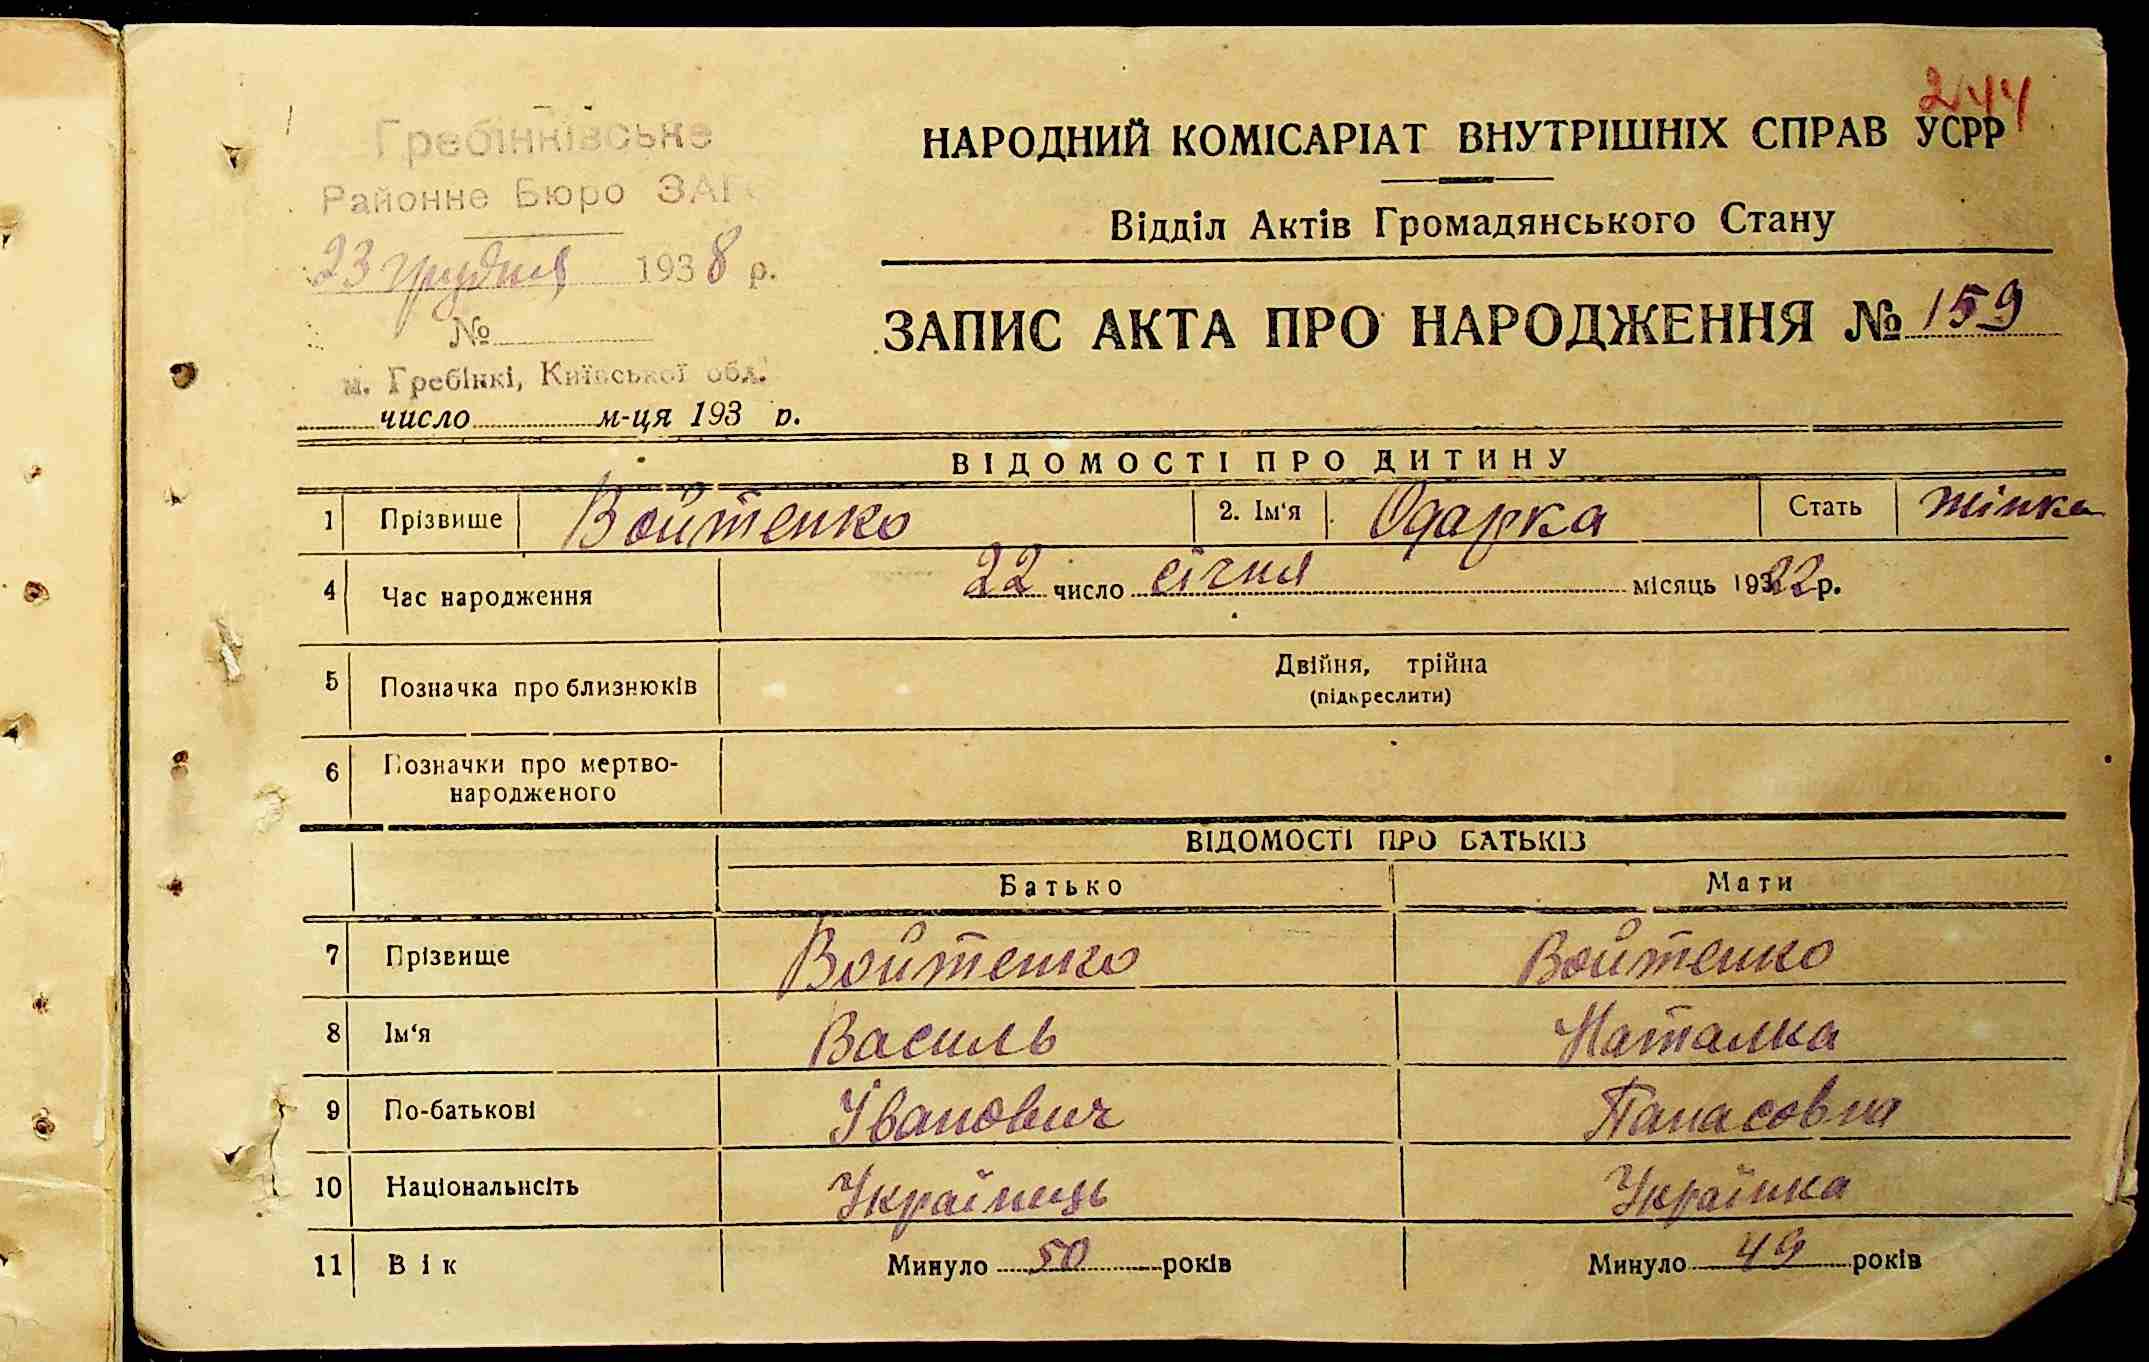 244
Гребінківське
Районне Бюро ЗАГС
23 грудня 1938 р.
№
м. Гребінкі, Київської обл.
число м-ця 193 р.
НАРОДНИЙ КОМІСАРІАТ ВНУТРІШНІХ СПРАВ УСРР
Відділ Актів Громадянського Стану
ЗАПИС АКТА ПРО НАРОДЖЕННЯ № 159
ВІДОМОСТІ ПРО ДИТИНУ
1 Прізвище Войтенко 2. Ім'я Одарка Стать жінка
4 Час народження 22 число січня місяць 1922 р.
5 Позначка про близнюків Двійня, трійна
(підкреслити)
6 Позначки про мертво-
народженого
ВІДОМОСТІ ПРО БАТЬКІВ
Батько Мати
7 Прізвище Войтенко Войтенко
8 Ім'я Василь Наталка
9 По-батькові Іванович Панасовна
10 Національнсіть Українець Українка
11 Вік Минуло 50 років Минуло 49 років